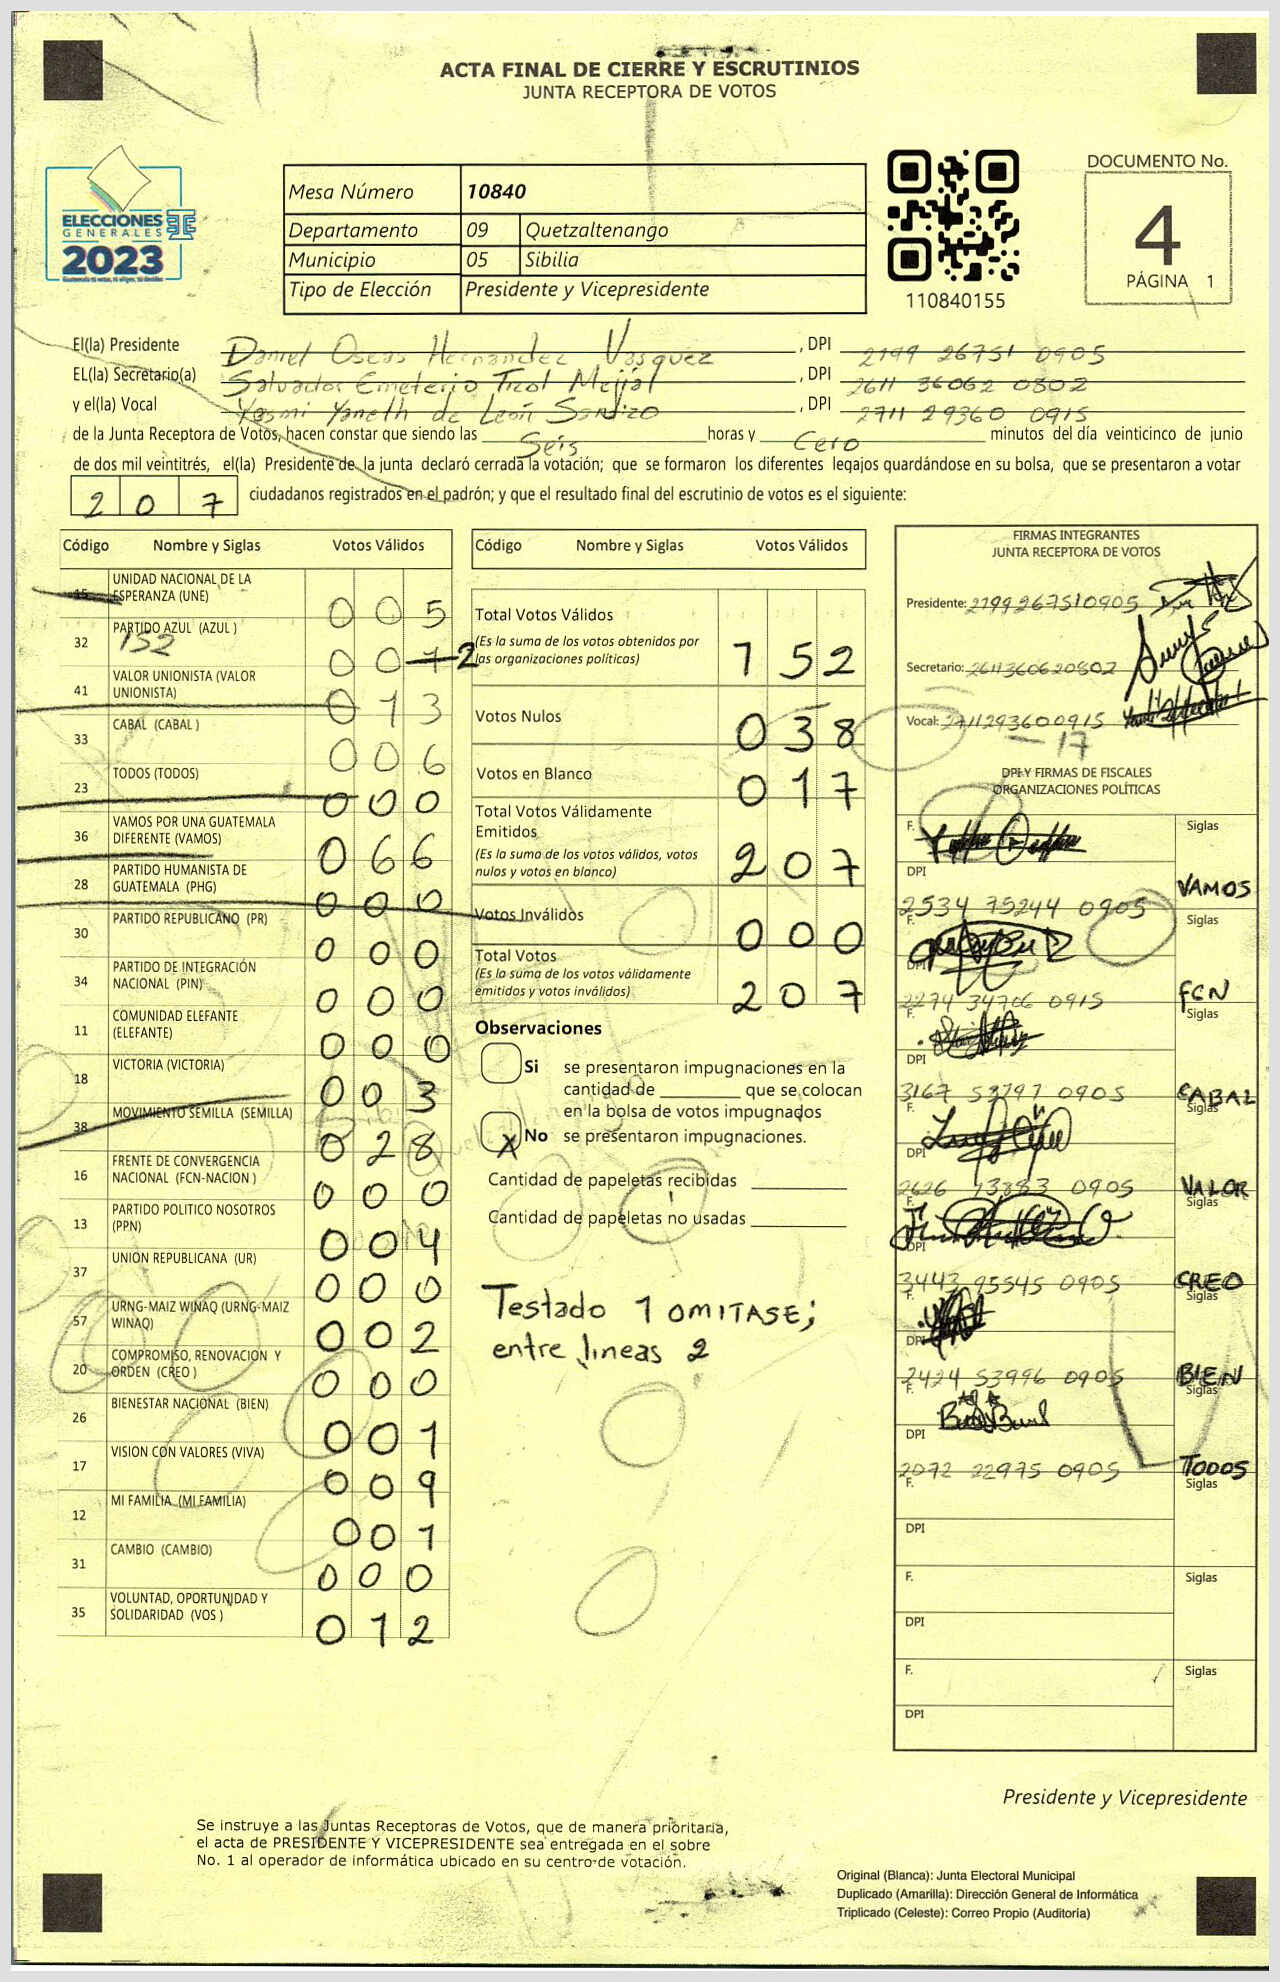 ACTA FINAL DE CIERRE Y ESCRUTINIOS
JUNTA RECEPTORA DE VOTOS
ELECCIONES
GENERALES
2023
Mesa Número 10840
Departamento 09 Quetzaltenango
Municipio 05 Sibilia
Tipo de Elección Presidente y Vicepresidente
110840155
DOCUMENTO No.
4
PÁGINA 1
El(la) Presidente Daniel Oseas Hernandez Vasquez, DPI 2199 26751 0905
EL(la) Secretario(a) Salvador Emeterio Tzol Mejía, DPI 2611 36062 0802
y el(la) Vocal Yasmi Yaneth de León, DPI 2711 29360 0915
de la Junta Receptora de Votos, hacen constar que siendo las Seis horas y Cero minutos del día veinticinco de junio
de dos mil veintitrés, el(la) Presidente de la junta declaró cerrada la votación; que se formaron los diferentes legajos guardándose en su bolsa, que se presentaron a votar
207 ciudadanos registrados en el padrón; y que el resultado final del escrutinio de votos es el siguiente:
Código Nombre y Siglas Votos Válidos
15 UNIDAD NACIONAL DE LA ESPERANZA (UNE) 005
32 PARTIDO AZUL (AZUL ) 00 2
152
41 VALOR UNIONISTA (VALOR UNIONISTA) 013
33 CABAL (CABAL ) 006
23 TODOS (TODOS) 000
36 VAMOS POR UNA GUATEMALA DIFERENTE (VAMOS) 066
28 PARTIDO HUMANISTA DE GUATEMALA (PHG) 000
30 PARTIDO REPUBLICANO (PR) 000
34 PARTIDO DE INTEGRACIÓN NACIONAL (PIN) 000
11 COMUNIDAD ELEFANTE (ELEFANTE) 000
18 VICTORIA (VICTORIA) 003
38 MOVIMIENTO SEMILLA (SEMILLA) 028
16 FRENTE DE CONVERGENCIA NACIONAL (FCN-NACION ) 000
13 PARTIDO POLITICO NOSOTROS (PPN) 004
37 UNION REPUBLICANA (UR) 000
57 URNG-MAIZ WINAQ (URNG-MAIZ WINAQ) 002
20 COMPROMISO, RENOVACION Y ORDEN (CREO ) 000
26 BIENESTAR NACIONAL (BIEN) 001
17 VISION CON VALORES (VIVA) 009
12 MI FAMILIA (MI FAMILIA) 001
31 CAMBIO (CAMBIO) 000
35 VOLUNTAD, OPORTUNIDAD Y SOLIDARIDAD (VOS ) 012
Código Nombre y Siglas Votos Válidos
Total Votos Válidos 152
(Es la suma de los votos obtenidos por
las organizaciones políticas)
Votos Nulos 038
Votos en Blanco 017
Total Votos Válidamente
Emitidos 207
(Es la suma de los votos válidos, votos
nulos y votos en blanco)
Votos Inválidos 000
Total Votos 207
(Es la suma de los votos válidamente
emitidos y votos inválidos)
Observaciones
Si se presentaron impugnaciones en la
cantidad de ________ que se colocan
en la bolsa de votos impugnados
X No se presentaron impugnaciones.
Cantidad de papeletas recibidas
Cantidad de papeletas no usadas
Testado 1 OMITASE;
entre lineas 2
FIRMAS INTEGRANTES
JUNTA RECEPTORA DE VOTOS
Presidente: 2199267510905
Secretario: 2611360620802
Vocal: 2711293600915
17
DPI Y FIRMAS DE FISCALES
ORGANIZACIONES POLÍTICAS
F. Siglas
DPI 2534 75244 0905 VAMOS
F. Siglas
DPI 2274 34706 0915 FCN
F. Siglas
DPI 3167 53797 0905 CABAL
F. Siglas
DPI 2626 13883 0905 VALOR
F. Siglas
DPI 3443 95545 0905 CREO
F. Siglas
DPI 2424 53996 0905 BIEN
F. Siglas
DPI 2072 22975 0905 TODOS
F. Siglas
DPI
F. Siglas
DPI
F. Siglas
DPI
Presidente y Vicepresidente
Se instruye a las Juntas Receptoras de Votos, que de manera prioritaria,
el acta de PRESIDENTE Y VICEPRESIDENTE sea entregada en el sobre
No. 1 al operador de informática ubicado en su centro de votación.
Original (Blanca): Junta Electoral Municipal
Duplicado (Amarilla): Dirección General de Informática
Triplicado (Celeste): Correo Propio (Auditoría)